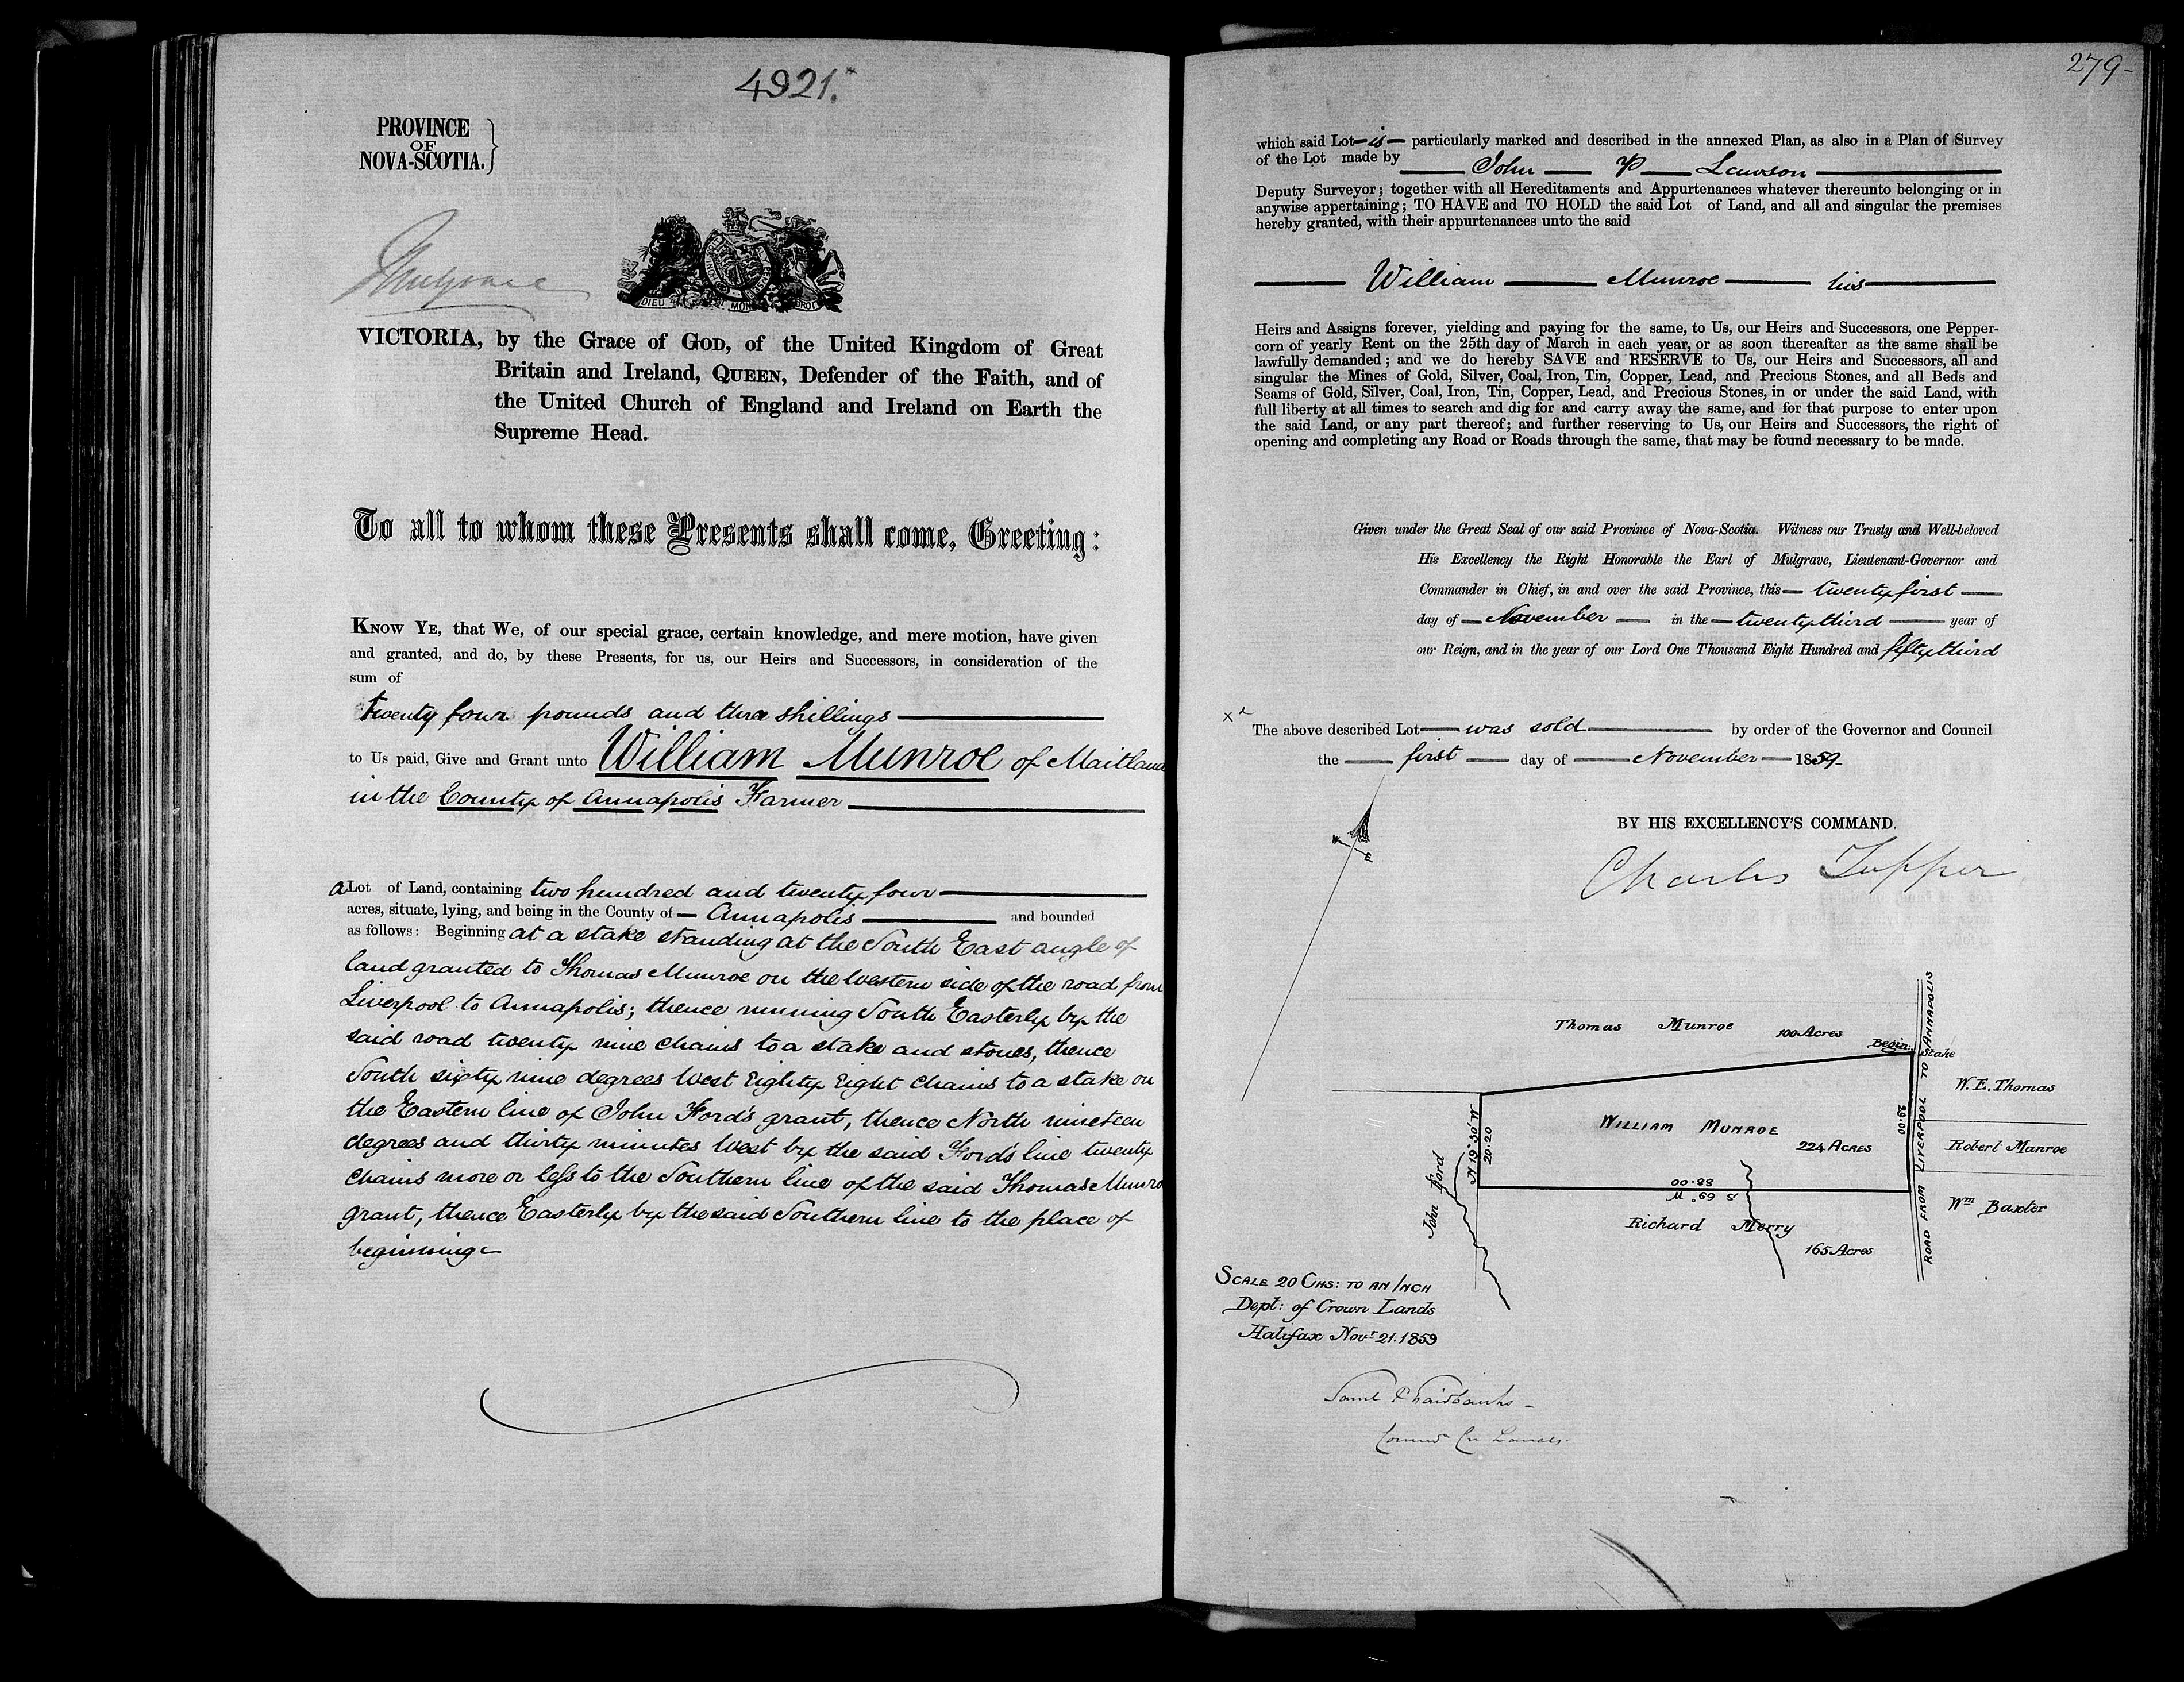 4921.
PROVINCE
OF
NOVA-SCOTIA.
Mulgrave
DIEU ET MON DROIT
VICTORIA, by the Grace of GOD, of the United Kingdom of Great
Britain and Ireland, QUEEN, Defender of the Faith, and of
the United Church of England and Ireland on Earth the
Supreme Head.
To all to whom these Presents shall come, Greeting:
KNOW YE, that We, of our special grace, certain knowledge, and mere motion, have given
and granted, and do, by these Presents, for us, our Heirs and Successors, in consideration of the
sum of
twenty four pounds and three shillings
to Us paid, Give and Grant unto William Munroe of Maitland
in the County of Annapolis Farmer
a Lot of Land, containing two hundred and twenty four
acres, situate, lying, and being in the County of Annapolis and bounded
as follows: Beginning at a stake standing at the South East angle of
land granted to Thomas Munroe on the Western side of the road from
Liverpool to Annapolis; thence running South Easterly by the
said road twenty nine chains to a stake and stones, thence
South sixty nine degrees West Eighty Eight chains to a stake on
the Eastern line of John Ford's grant, thence North nineteen
degrees and thirty minutes West by the said Ford's line twenty
chains more or less to the Southern line of the said Thomas Munro
grant, thence Easterly by the said Southern line to the place of
beginning
279-
which said Lot is particularly marked and described in the annexed Plan, as also in a Plan of Survey
of the Lot made by John P Lawson
Deputy Surveyor; together with all Hereditaments and Appurtenances whatever thereunto belonging or in
anywise appertaining; TO HAVE and TO HOLD the said Lot of Land, and all and singular the premises
hereby granted, with their appurtenances unto the said
William Munroe his
Heirs and Assigns forever, yielding and paying for the same, to Us, our Heirs and Successors, one Pepper-
corn of yearly Rent on the 25th day of March in each year, or as soon thereafter as the same shall be
lawfully demanded; and we do hereby SAVE and RESERVE to Us, our Heirs and Successors, all and
singular the Mines of Gold, Silver, Coal, Iron, Tin, Copper, Lead, and Precious Stones, and all Beds and
Seams of Gold, Silver, Coal, Iron, Tin, Copper, Lead, and Precious Stones, in or under the said Land, with
full liberty at all times to search and dig for and carry away the same, and for that purpose to enter upon
the said Land, or any part thereof; and further reserving to Us, our Heirs and Successors, the right of
opening and completing any Road or Roads through the same, that may be found necessary to be made.
Given under the Great Seal of our said Province of Nova-Scotia. Witness our Trusty and Well-beloved
His Excellency the Right Honorable the Earl of Mulgrave, Lieutenant-Governor and
Commander in Chief, in and over the said Province, this twenty first
day of November in the twenty third year of
our Reign, and in the year of our Lord One Thousand Eight Hundred and fifty third
The above described Lot was sold by order of the Governor and Council
the first day of November 1859-
BY HIS EXCELLENCY'S COMMAND.
Charles Tupper
W E
Thomas Munroe 100 Acres
Begin: Stake
W. E. Thomas
WILLIAM MUNROE
224 ACRES
29.00
Robert Munroe
N 19° 30' W
20.20
88.00
S 69° W
John Ford
Richard Merry
165 Acres
Wm Baxter
ROAD FROM LIVERPOOL TO ANNAPOLIS
SCALE 20 CHS: TO AN INCH
Dept: of Crown Lands
Halifax Novr 21. 1859
Saml P Fairbanks
Commr Cn Lands.